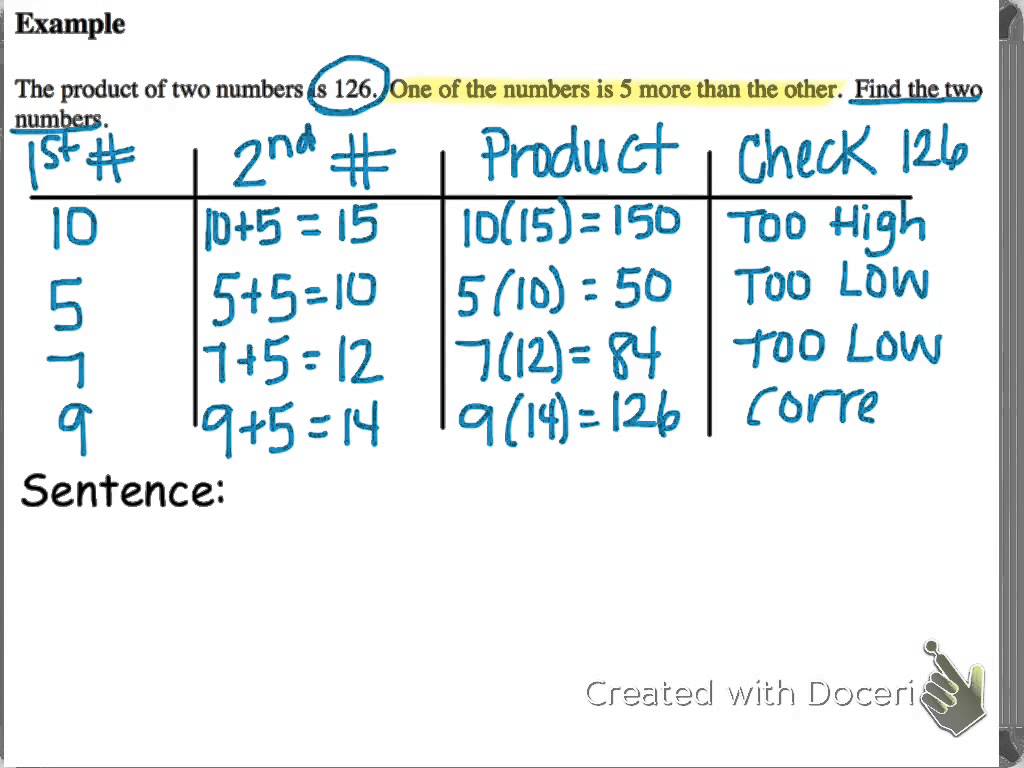 Example
The product of two numbers is 126. One of the numbers is 5 more than the other. Find the two
numbers.
1st # 2nd # Product Check 126
10 10+5=15 10(15)=150 Too High
5 5+5=10 5(10)=50 Too Low
7 7+5=12 7(12)=84 Too Low
9 9+5=14 9(14)=126 Corre
Sentence:
Created with Doceri